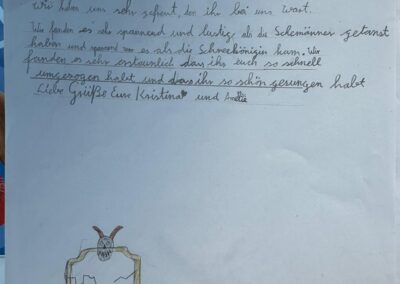 Wir haben uns sehr gefreut, den ihr bei uns wart.
Wir fanden es sehr spannend und lustig als die Schemänner getanst
haben und spannend war es als die Schneekönigin kam. Wir
fanden es sehr erstaunlich das ihr euch so schnell
umgezogen habt und das ihr so schön gesungen habt
Liebe Grüße Eure Kristina♥ und Amelie